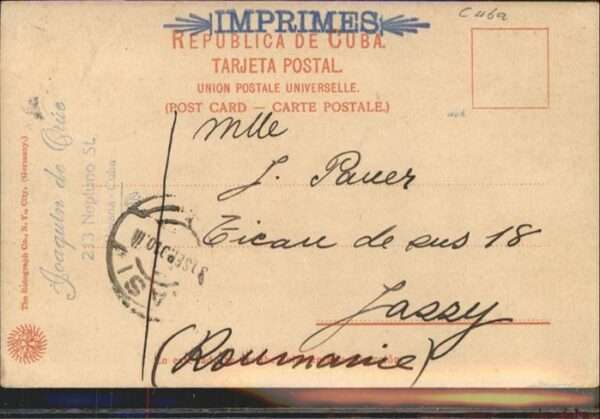 IMPRIMES
Cuba
REPUBLICA DE CUBA.
TARJETA POSTAL.
UNION POSTALE UNIVERSELLE.
(POST CARD — CARTE POSTALE.)
Mlle
J. Pauer
Ticau de sus 18
Jassy
(Roumanie)
Joaquín de
213 Neptuno St.
Cuba
The Rotograph Co., N. Y. City. (Germany.)